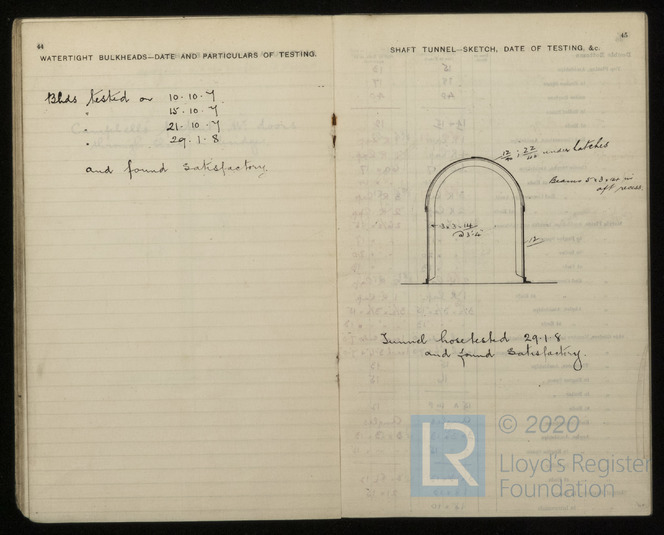 44
WATERTIGHT BULKHEADS—DATE AND PARTICULARS OF TESTING.
Bhds tested on 10·10·7
" 15·10·7
" 21·10·7
" 29·1·8
and found satisfactory.
45
SHAFT TUNNEL—SKETCH, DATE OF TESTING, &c.
under hatches
Beams 5 x 3 x in
aft recess.
3 x 3 x 14
12
Tunnel hose tested 29·1·8
and found satisfactory.
LR
© 2020
Lloyd's Register
Foundation